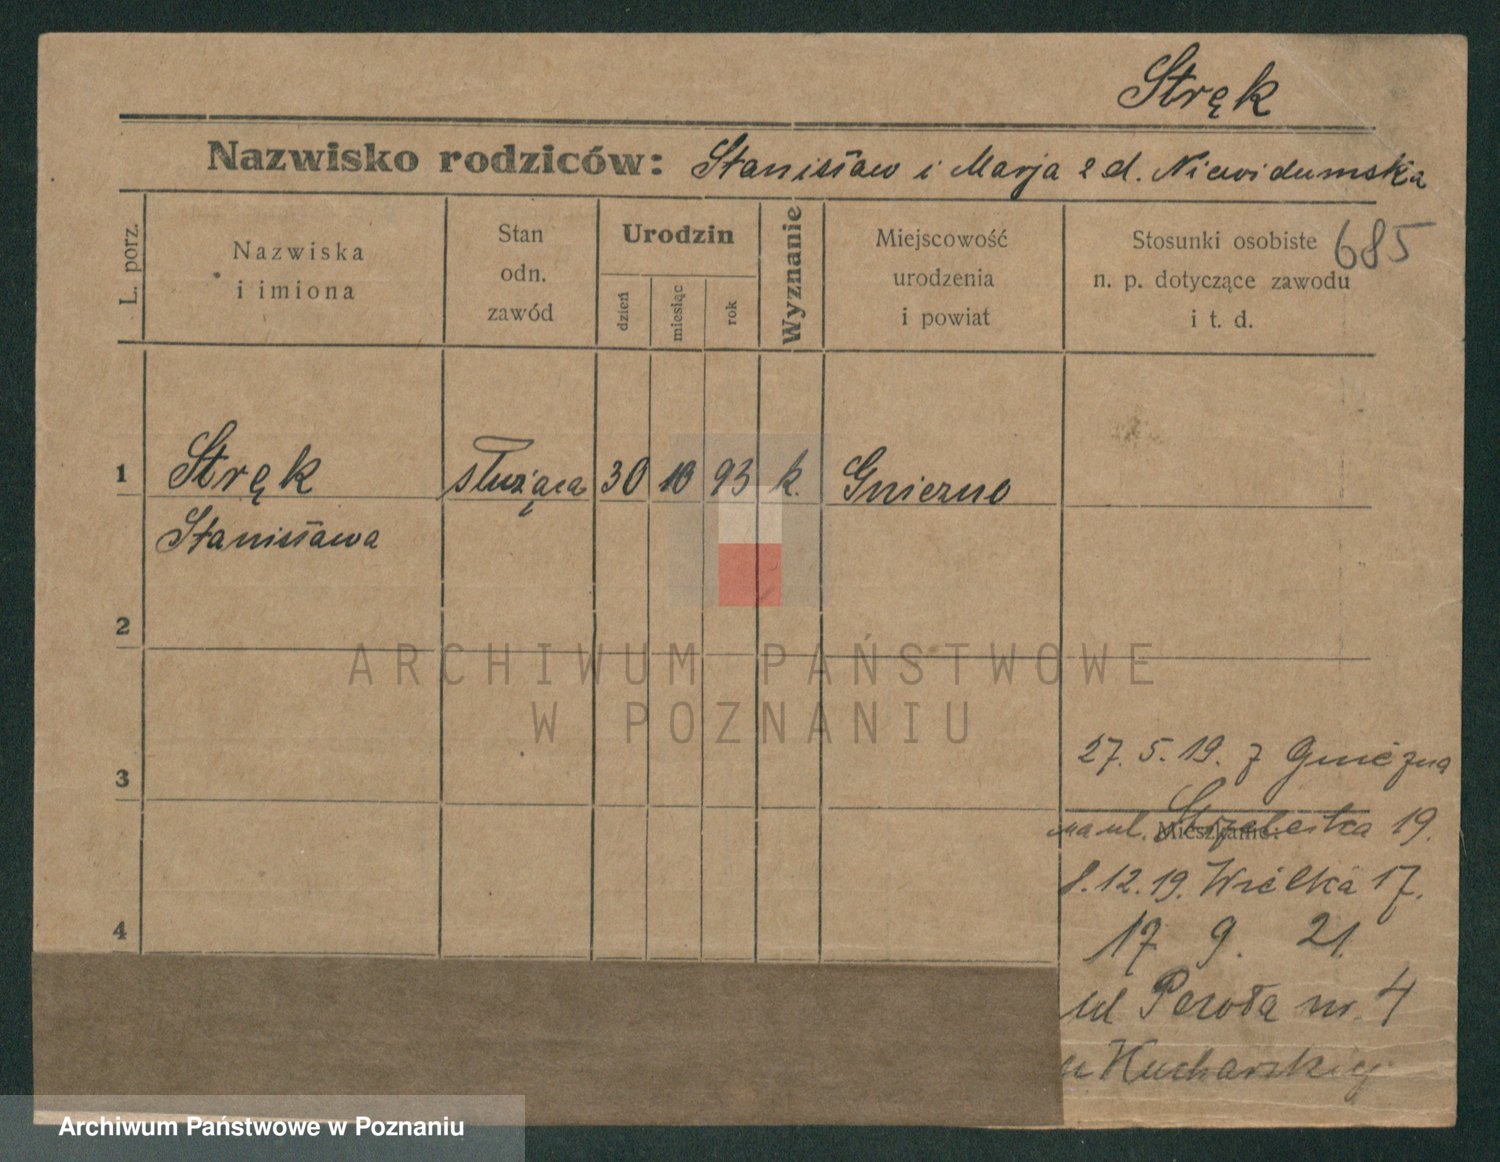 Stręk
Nazwisko rodziców: Stanisław i Marja z d. Niewidumska
L. porz.
Nazwiska
i imiona
Stan
odn.
zawód
Urodzin
dzień
miesiąc
rok
Wyznanie
Miejscowość
urodzenia
i powiat
Stosunki osobiste
n. p. dotyczące zawodu
i t. d.
685
1 Stręk służąca 30 10 93 k. Gniezno
Stanisława
2
ARCHIWUM PAŃSTWOWE
W POZNANIU
3
27. 5. 19. z Gniezna
Mieszkanie:
na ul. 19.
8.12.19. Wielka 17.
4
17 9. 21.
ul nr. 4
u Kucharskiej
Archiwum Państwowe w Poznaniu